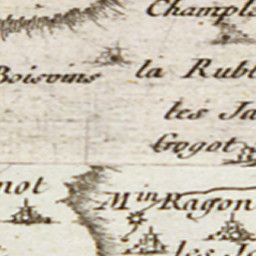 Champl
Boisvins
la Rubl
les Ja
Gogot
not
Min Ragon
les Jo